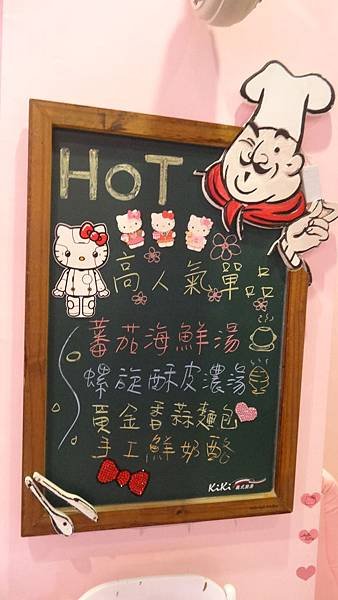 HOT
高人氣單品
蕃茄海鮮湯
螺旋酥皮濃湯
黃金香蒜麵包
手工鮮奶酪
KiKi